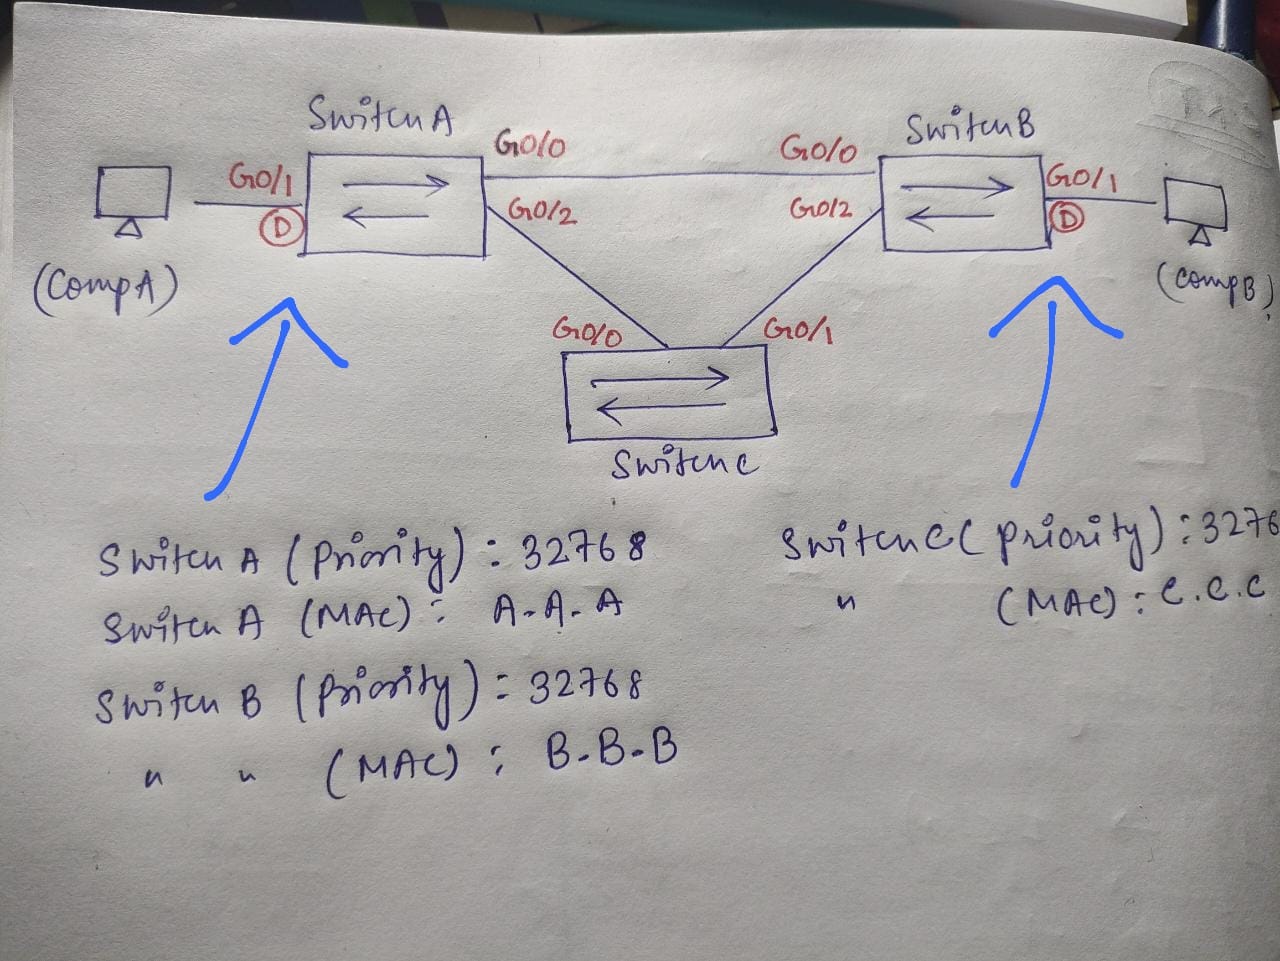 Switch A
Switch B
G0/0
G0/0
G0/1
G0/1
G0/2
G0/2
D
D
(CompA)
(CompB)
G0/0
G0/1
Switch C
Switch A (Priority) : 32768
Switch A (MAC) : A.A.A
Switch B (Priority) : 32768
" " (MAC) : B.B.B
Switch C (Priority) : 3276
" (MAC) : C.C.C